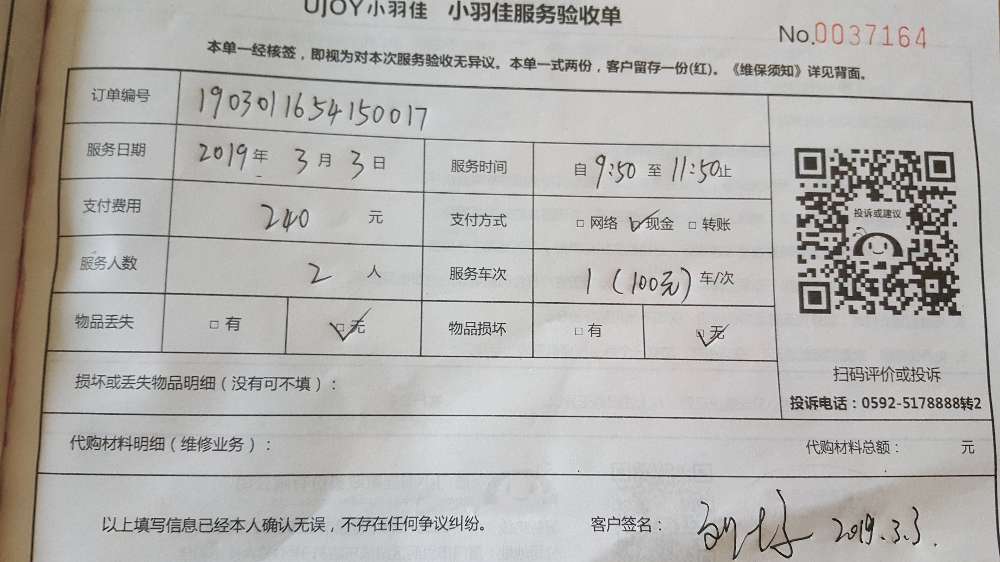 UJOY小羽佳 小羽佳服务验收单
No.0037164
本单一经核签，即视为对本次服务验收无异议。本单一式两份，客户留存一份(红)。《维保须知》详见背面。
订单编号 1903011654150017
服务日期 2019年 3月 3日 服务时间 自 9:50 至 11:50止
支付费用 240 元 支付方式 □ 网络 ☑ 现金 □ 转账
服务人数 2 人 服务车次 1 (100元) 车/次
物品丢失 □ 有 ☑ 无 物品损坏 □ 有 ☑ 无
投诉或建议
扫码评价或投诉
投诉电话：0592-5178888转2
损坏或丢失物品明细（没有可不填）：
代购材料明细（维修业务）： 代购材料总额： 元
以上填写信息已经本人确认无误，不存在任何争议纠纷。 客户签名： 2019.3.3.